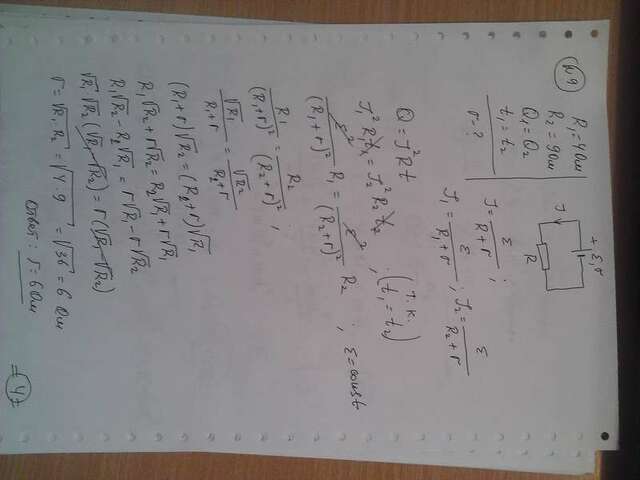 №9
R₁=4Ом
R₂=9Ом
Q₁=Q₂
t₁=t₂
r-?
+ ℰ, r
J
R
J = ℰ/(R+r) ;
J₁ = ℰ/(R₁+r) ; J₂ = ℰ/(R₂+r)
Q = J²Rt
J₁²R₁t₁ = J₂²R₂t₂ ; (т.к. t₁=t₂)
ℰ²/(R₁+r)² R₁ = ℰ²/(R₂+r)² R₂ ; ℰ=const
R₁/(R₁+r)² = R₂/(R₂+r)² ;
√R₁/(R₁+r) = √R₂/(R₂+r)
(R₁+r)√R₂ = (R₂+r)√R₁
R₁√R₂ + r√R₂ = R₂√R₁ + r√R₁
R₁√R₂ - R₂√R₁ = r√R₁ - r√R₂
√R₁·√R₂(√R₁-√R₂) = r(√R₁-√R₂)
r = √R₁·R₂ = √4·9 = √36 = 6 Ом
Ответ: r=6Ом